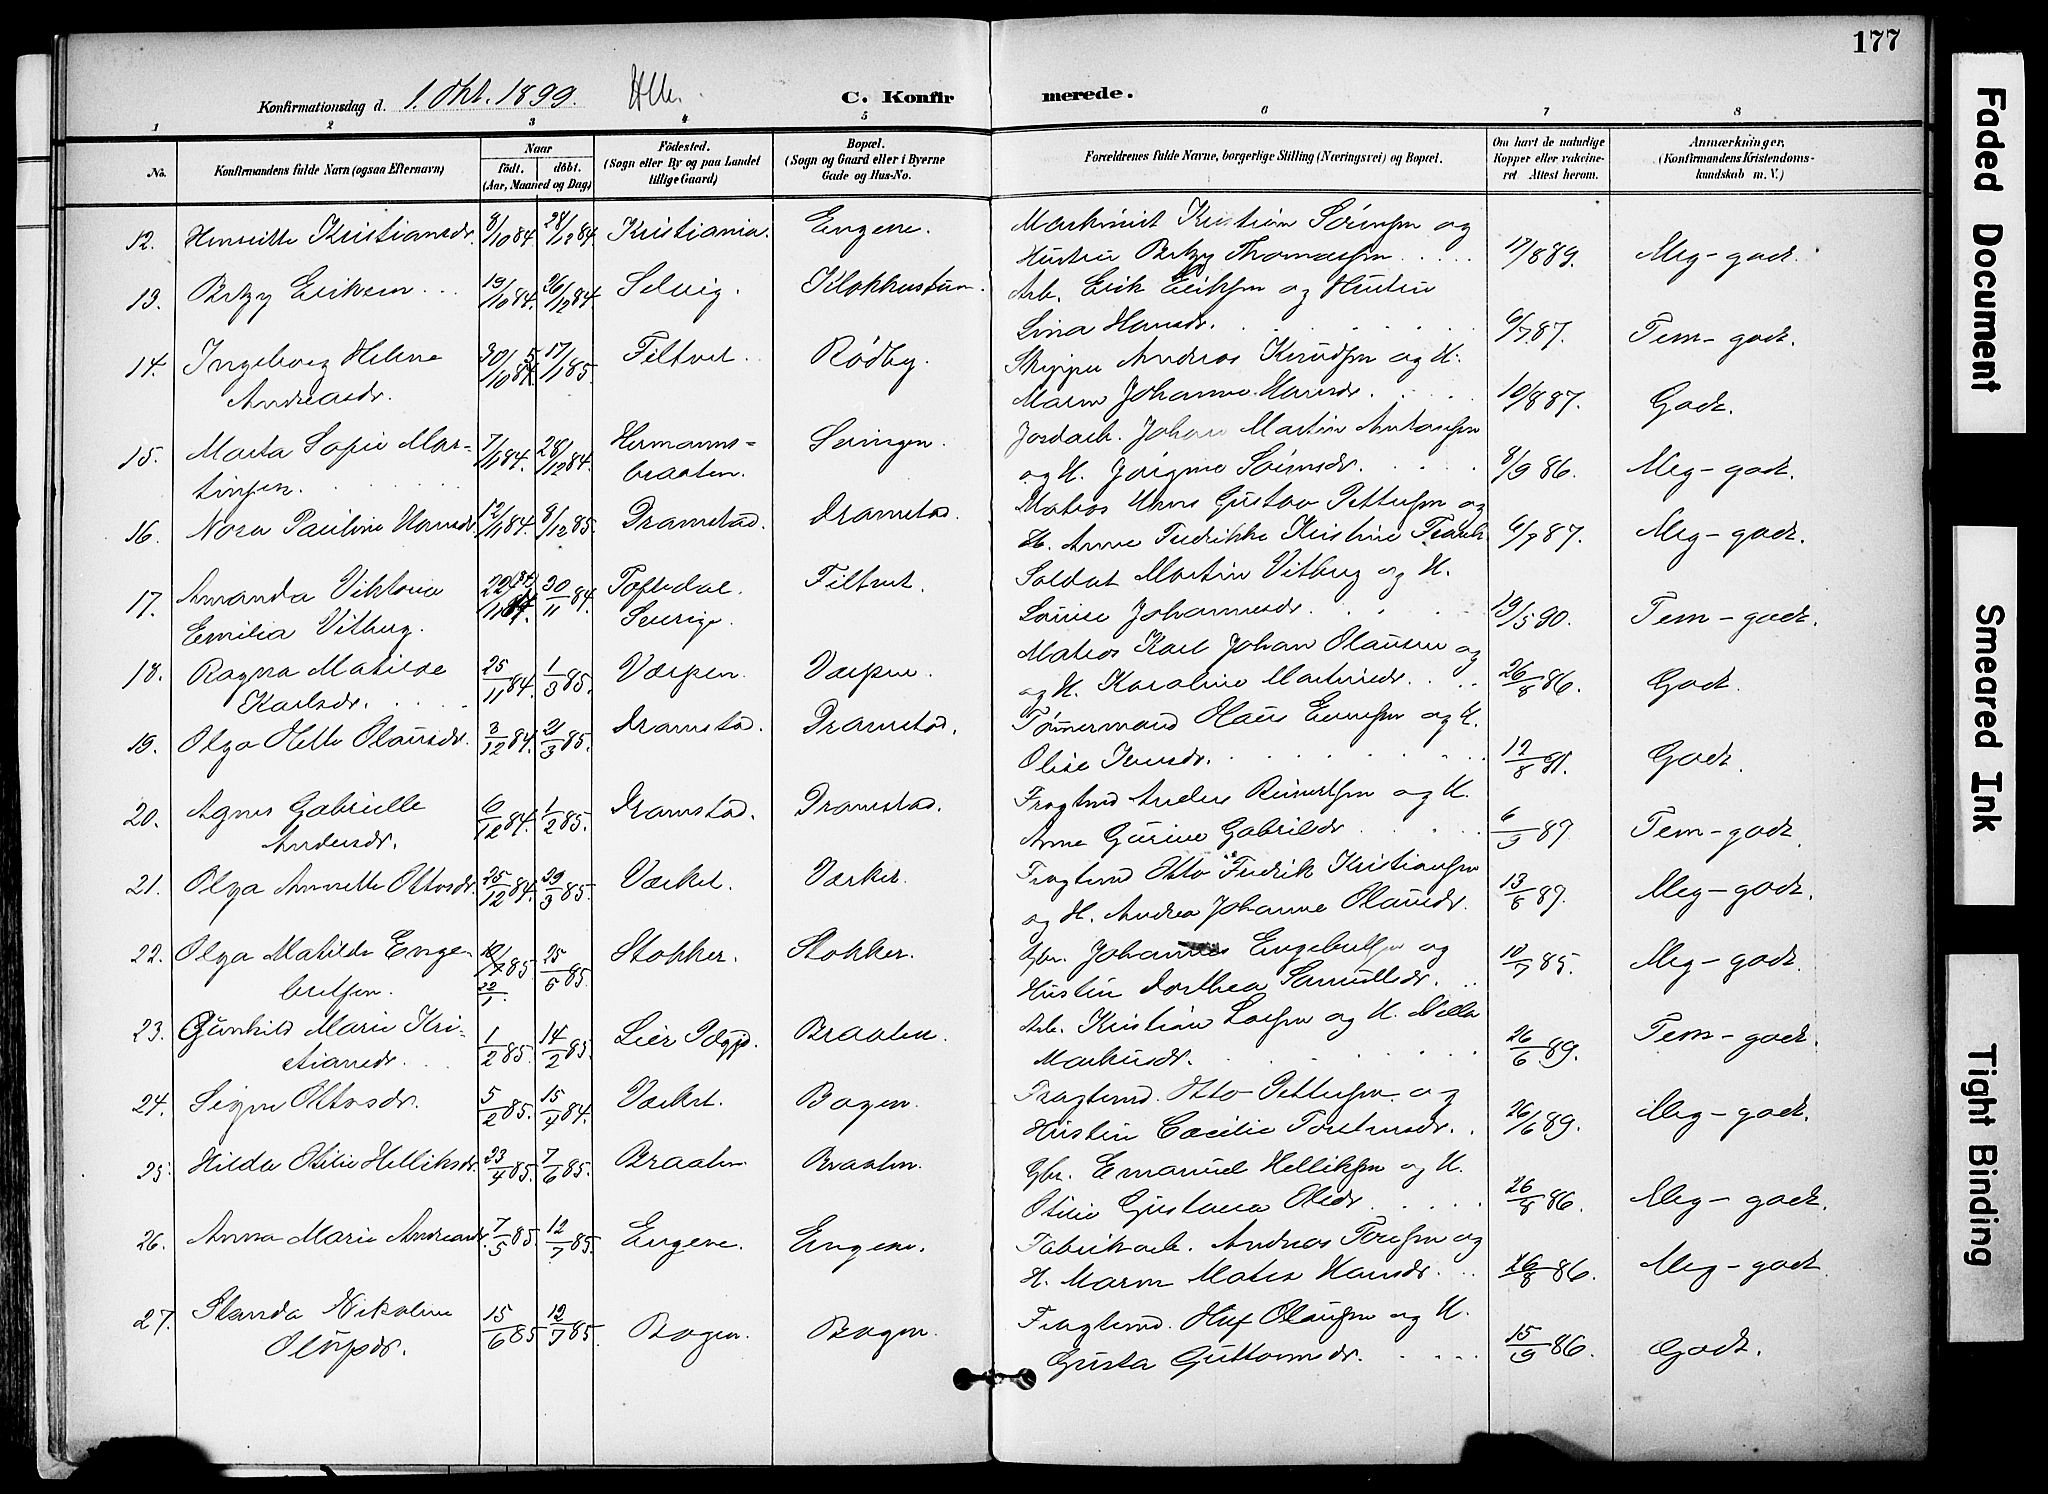 177
Konfirmationsdag d. 1. Okt. 1899.
C. Konfirmerede.
1 2 3 4 5 6 7 8
No.
Konfirmandens fulde Navn (ogsaa Efternavn)
Naar
født. døbt.
(Aar, Maaned og Dag)
Fødested.
(Sogn eller By og paa Landet
tillige Gaard)
Bopæl.
(Sogn og Gaard eller i Byerne
Gade og Hus-No.
Forældrenes fulde Navne, borgerlige Stilling (Næringsvei) og Bopæl.
Om havt de naturlige
Kopper eller vakcine-
ret Attest herom.
Anmærkninger,
(Konfirmandens Kristendoms-
kundskab m. V.)
12. Henriette Kristiansdr. 8/10 84. 28/12 84. Kristiania. Engene. Maskinist Kristian Sörensen og
Hustru Betzy Thomassen 17/8 89. Meg-godt.
13. Betzy Eriksen 13/10 84. 26/12 84. Selvig. Klokkustuen. Arb. Erik Eriksen og Hustru
Lina Hansdr. 6/7 87. Tem-godt.
14. Ingeborg Helene 30/10 84. 17/1 85. Filtvet. Rödby. Skipper Andreas Knudsen og H.
Andreasdr. Maren Johanne Hansdr. 10/8 87. Godt.
15. Marta Sofie Mar- 7/11 84. 28/12 84. Hermanns- Seringen. Jordarb. Johan Martin Antonsen
tinsen. braaten. og H. Jörgine Sörensdr. 8/9 86. Meg-godt.
16. Nora Pauline Hansdr. 12/11 84. 8/12 85. Dramstad. Dramstad. Matros Hans Gustav Pettersen og
H. Anne Fredrikke Kristine 6/7 87. Meg-godt.
17. Amanda Viktoria 22/11 84. 30/11 84. Toftedal Filtvet. Soldat Martin Vitberg og H.
Emilia Vitberg. Sverige. Louise Johannesdr. 19/5 90. Tem-godt.
18. Ragna Matilde 25/11 84. 1/3 85. Værpen. Værpen. Matros Karl Johan Olausen og
Karlsdr. og H. Karoline Martinsdr. 26/8 86. Godt.
19. Olga Hette Olausdr. 3/12 84. 21/3 85. Dramstad. Dramstad. Tömmermand Olaus Evensen og H.
Olise Jensdr. 12/8 91. Godt.
20. Agnes Gabrielle 6/12 84. 1/2 85. Dramstad. Dramstad. Fragtmd Anders Reinertsen og H.
Andersdr. Anne Gurine Gabrielsdr. 6/9 87. Tem-godt.
21. Olga Annette Ottosdr. 25/12 84. 29/3 85. Værket. Værket. Fragtmd Otto Fredrik Kristiansen
og H. Andrea Johanne Olausdr. 13/8 87. Meg-godt.
22. Olga Matilde Enge- 85. 25/5 85. Stokker. Stokker. Gbr. Johannes Engebretsen og
bretsen. 22/1. Hustru Dorthea Samuelsdr. 10/7 85. Meg-godt.
23. Gunhild Marie Kri- 1/2 85. 14/2 85. Lier Braaten. Arb. Kristian Larsen og H.
stiansdr. Markusdr. 26/6 89. Tem-godt.
24. Signe Ottosdr. 5/2 85. 15/4 84. Værket. Bogen. Fragtmd. Otto Pettersen og
Hustru Cæcilie Torstensdr. 26/6 89. Meg-godt.
25. Hilda Otilie Helliksdr. 23/4 85. 7/6 85. Braaten. Braaten. Gbr. Emanuel Helliksen og H.
Otilie Gustava Olsdr. 26/8 86. Meg-godt.
26. Anna Marie Andreasdr. 7/5 85. 12/7 85. Engene. Engene. Fabrikarb. Andreas Toresen og
H. Maren Matea Hansdr. 26/8 86. Meg-godt.
27. Skanda Nikoline 15/6 85. 12/7 85. Bogen. Bogen. Fragtmd. Olausen og H.
Olufsdr. Gusta Guttormsdr. 15/9 86. Godt.
Faded Document
Smeared Ink
Tight Binding